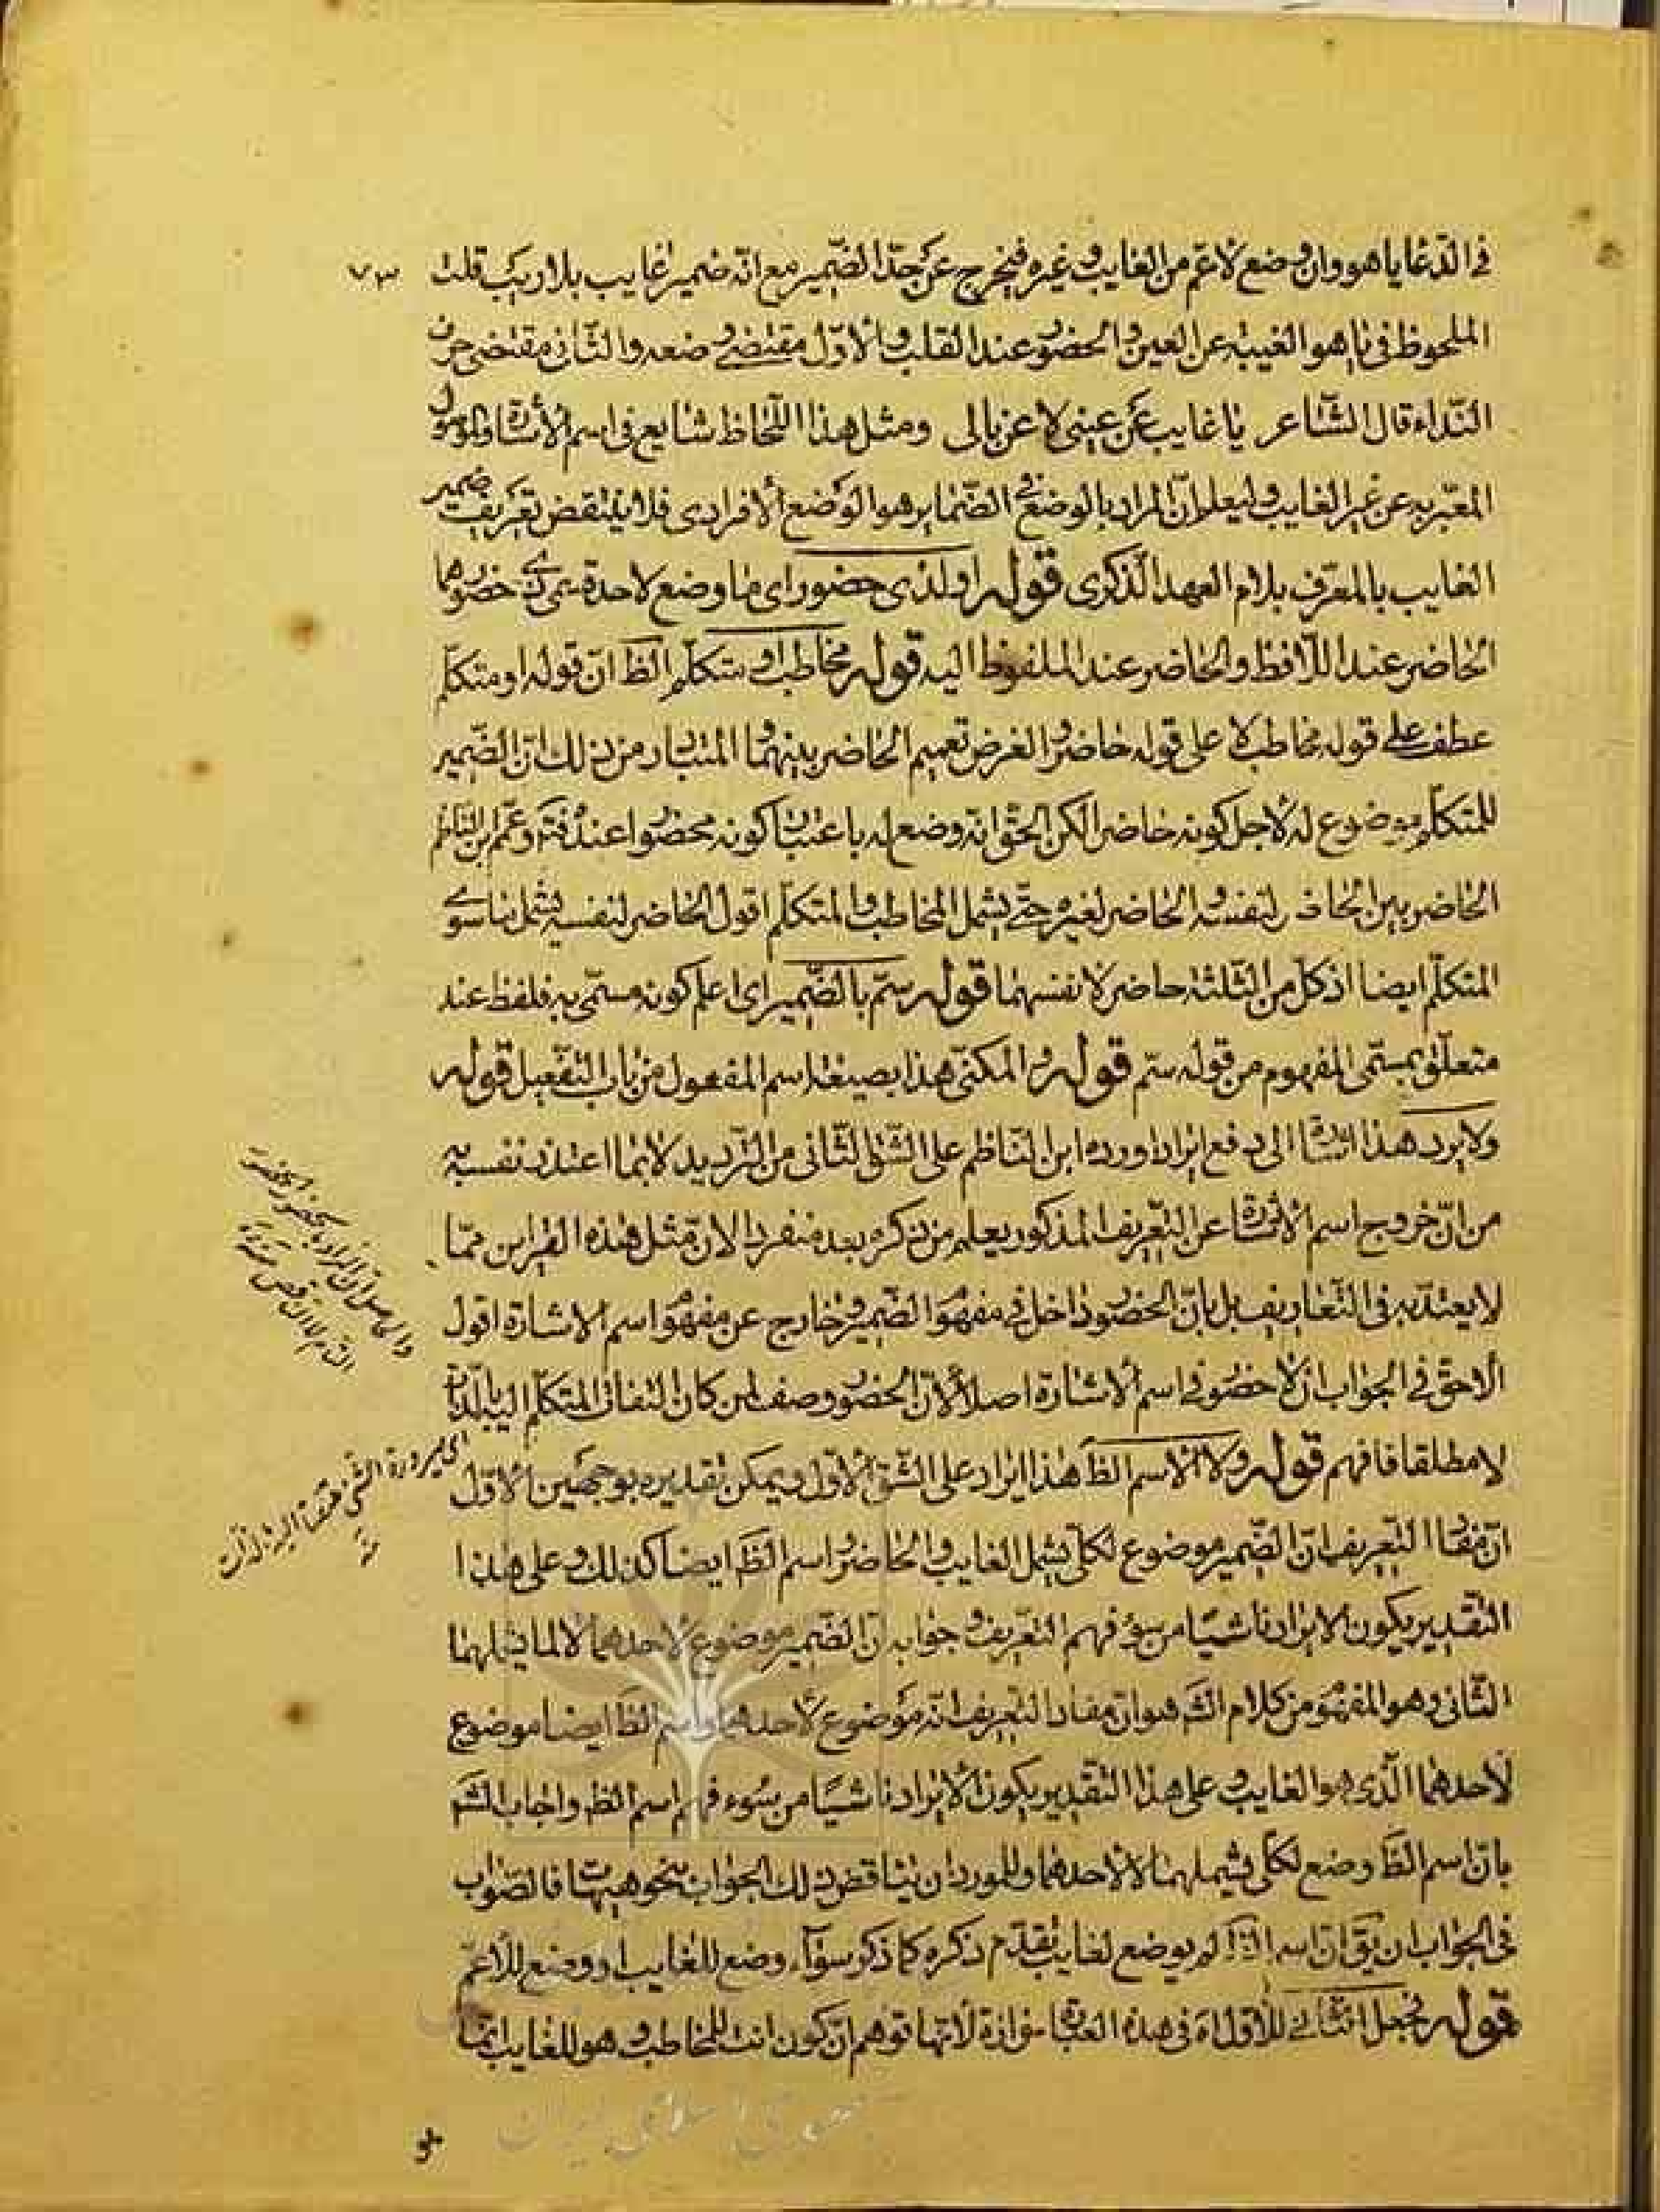 في الدعا يا هو وان وضع لاعم من الغايب وغيره فيخرج عن حد الضمير مع انه ضمير غايب بلا ريب قلت
٧٣
الملحوظ في يا هو الغيبة عن العين والحضور عند القلب والاول مقتضى وضعه والثاني مقتضى حرف
النداء قال الشاعر يا غايب عن عيني لا عن بالي ومثل هذا اللحاظ شايع في اسم الاشارة والموصول
المعبر به عن غير الغايب وليعلم ان المراد بالوضع في الضماير هو الوضع الافرادي فلا ينتقض تعريف ضمير
الغايب بالمعرف بلام العهد الذكرى قوله او لذي حضور اي ما وضع لاحدة حضورهما
الحاضر عند اللافظ والحاضر عند الملفوظ اليه قوله مخاطب او متكلم الظ ان قوله او متكلم
عطف على قوله مخاطب لا على قوله حاضر والغرض تعميم الحاضر بينهما والمتبادر من ذلك ان الضمير
للمتكلم موضوع له لاجل كونه حاضرا لكن الحق انه وضع له باعتبار كونه محضورا عنده وعمم ابن الناظم
الحاضر بين الحاضر لنفسه والحاضر لغيره حتى يشمل المخاطب والمتكلم اقول الحاضر لنفسه يشمل ما سوى
المتكلم ايضا اذ كل من الثلثة حاضر لانفسهما قوله سم بالضمير اي اعلم كونه مسمى به فلفظ عند
متعلق بمسمى المفهوم من قوله سم قوله والمكنى هذا بصيغة اسم المفعول من باب التفعيل قوله
ولا يرد هذا اشارة الى دفع ايراد اورده ابن الناظم على الشق الثاني من الترديد لا بما اعتذر نفسه به
من ان خروج اسم الاشارة عن التعريف المذكور يعلم من ذكره بعد منفردا لان مثل هذه القراين مما
لا يعتد به في التعاريف بل بان الحضور داخل في مفهوم الضمير وخارج عن مفهوم اسم الاشارة اقول
الاحق في الجواب ان لا حضور في اسم الاشارة اصلا لان الحضور وصف لمن كان التفات المتكلم اليه بالذات
لا مطلقا فافهم قوله ولا الاسم الظ هذا ايراد على الشق الاول ويمكن تقديره بوجهين الاول
ان مفاد التعريف ان الضمير موضوع لكلي يشمل الغايب والحاضر واسم الظ ايضا كذلك وعلى هذا
التقدير يكون الايراد ناشيا من سوء فهم التعريف وجوابه ان الضمير موضوع لاحدهما لا لما يشملهما
الثاني وهو المفهوم من كلام الش هو ان مفاد التعريف انه موضوع لاحدهما واسم الظ ايضا موضوع
لاحدهما الذي هو الغايب وعلى هذا التقدير يكون الايراد ناشيا من سوء فهم اسم الظ واجاب الش
بان اسم الظ وضع لكلي يشملهما لا لاحدهما وللمورد ان يناقض ذلك الجواب بنحو هيهات فالصواب
في الجواب ان يق ان اسم الظ لم يوضع لغايب تقدم ذكره كما ذكر سواء وضع للغايب او وضع للاعم
قوله فجعل الثاني للاول اه في هذه العبارة حزازة لانها توهم ان كون انت للمخاطب وهو للغايب انما
هو